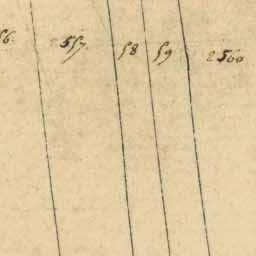 56 557 58 59 2560